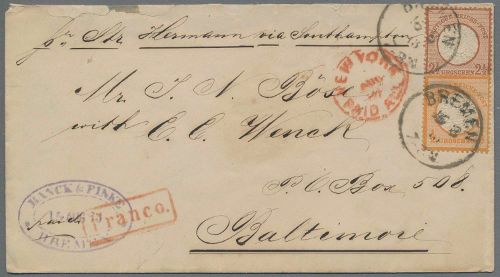 pr Str Hermann via Southampton
BREMEN
2½ GROSCHEN 2½
NEW YORK
PAID ALL
Mr. J. N. Böse
with C. C. Wenck
BREMEN
GROSCHEN
P.O. Box 508.
Franco.
BREMEN
Baltimore